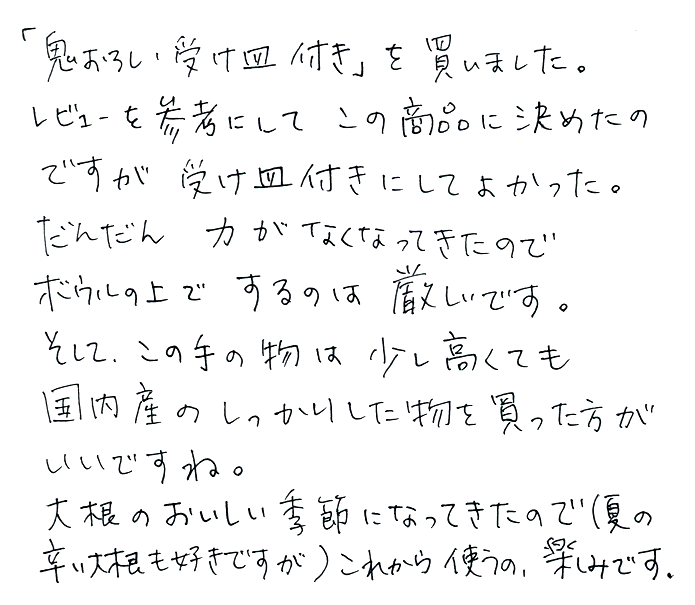 「鬼おろし受け皿付き」を買いました。
レビューを参考にしてこの商品に決めたの
ですが受け皿付きにしてよかった。
だんだん力がなくなってきたので
ボウルの上でするのは厳しいです。
そして、この手の物は少し高くても
国内産のしっかりした物を買った方が
いいですね。
大根のおいしい季節になってきたので(夏の
辛い大根も好きですが)これから使うの、楽しみです.